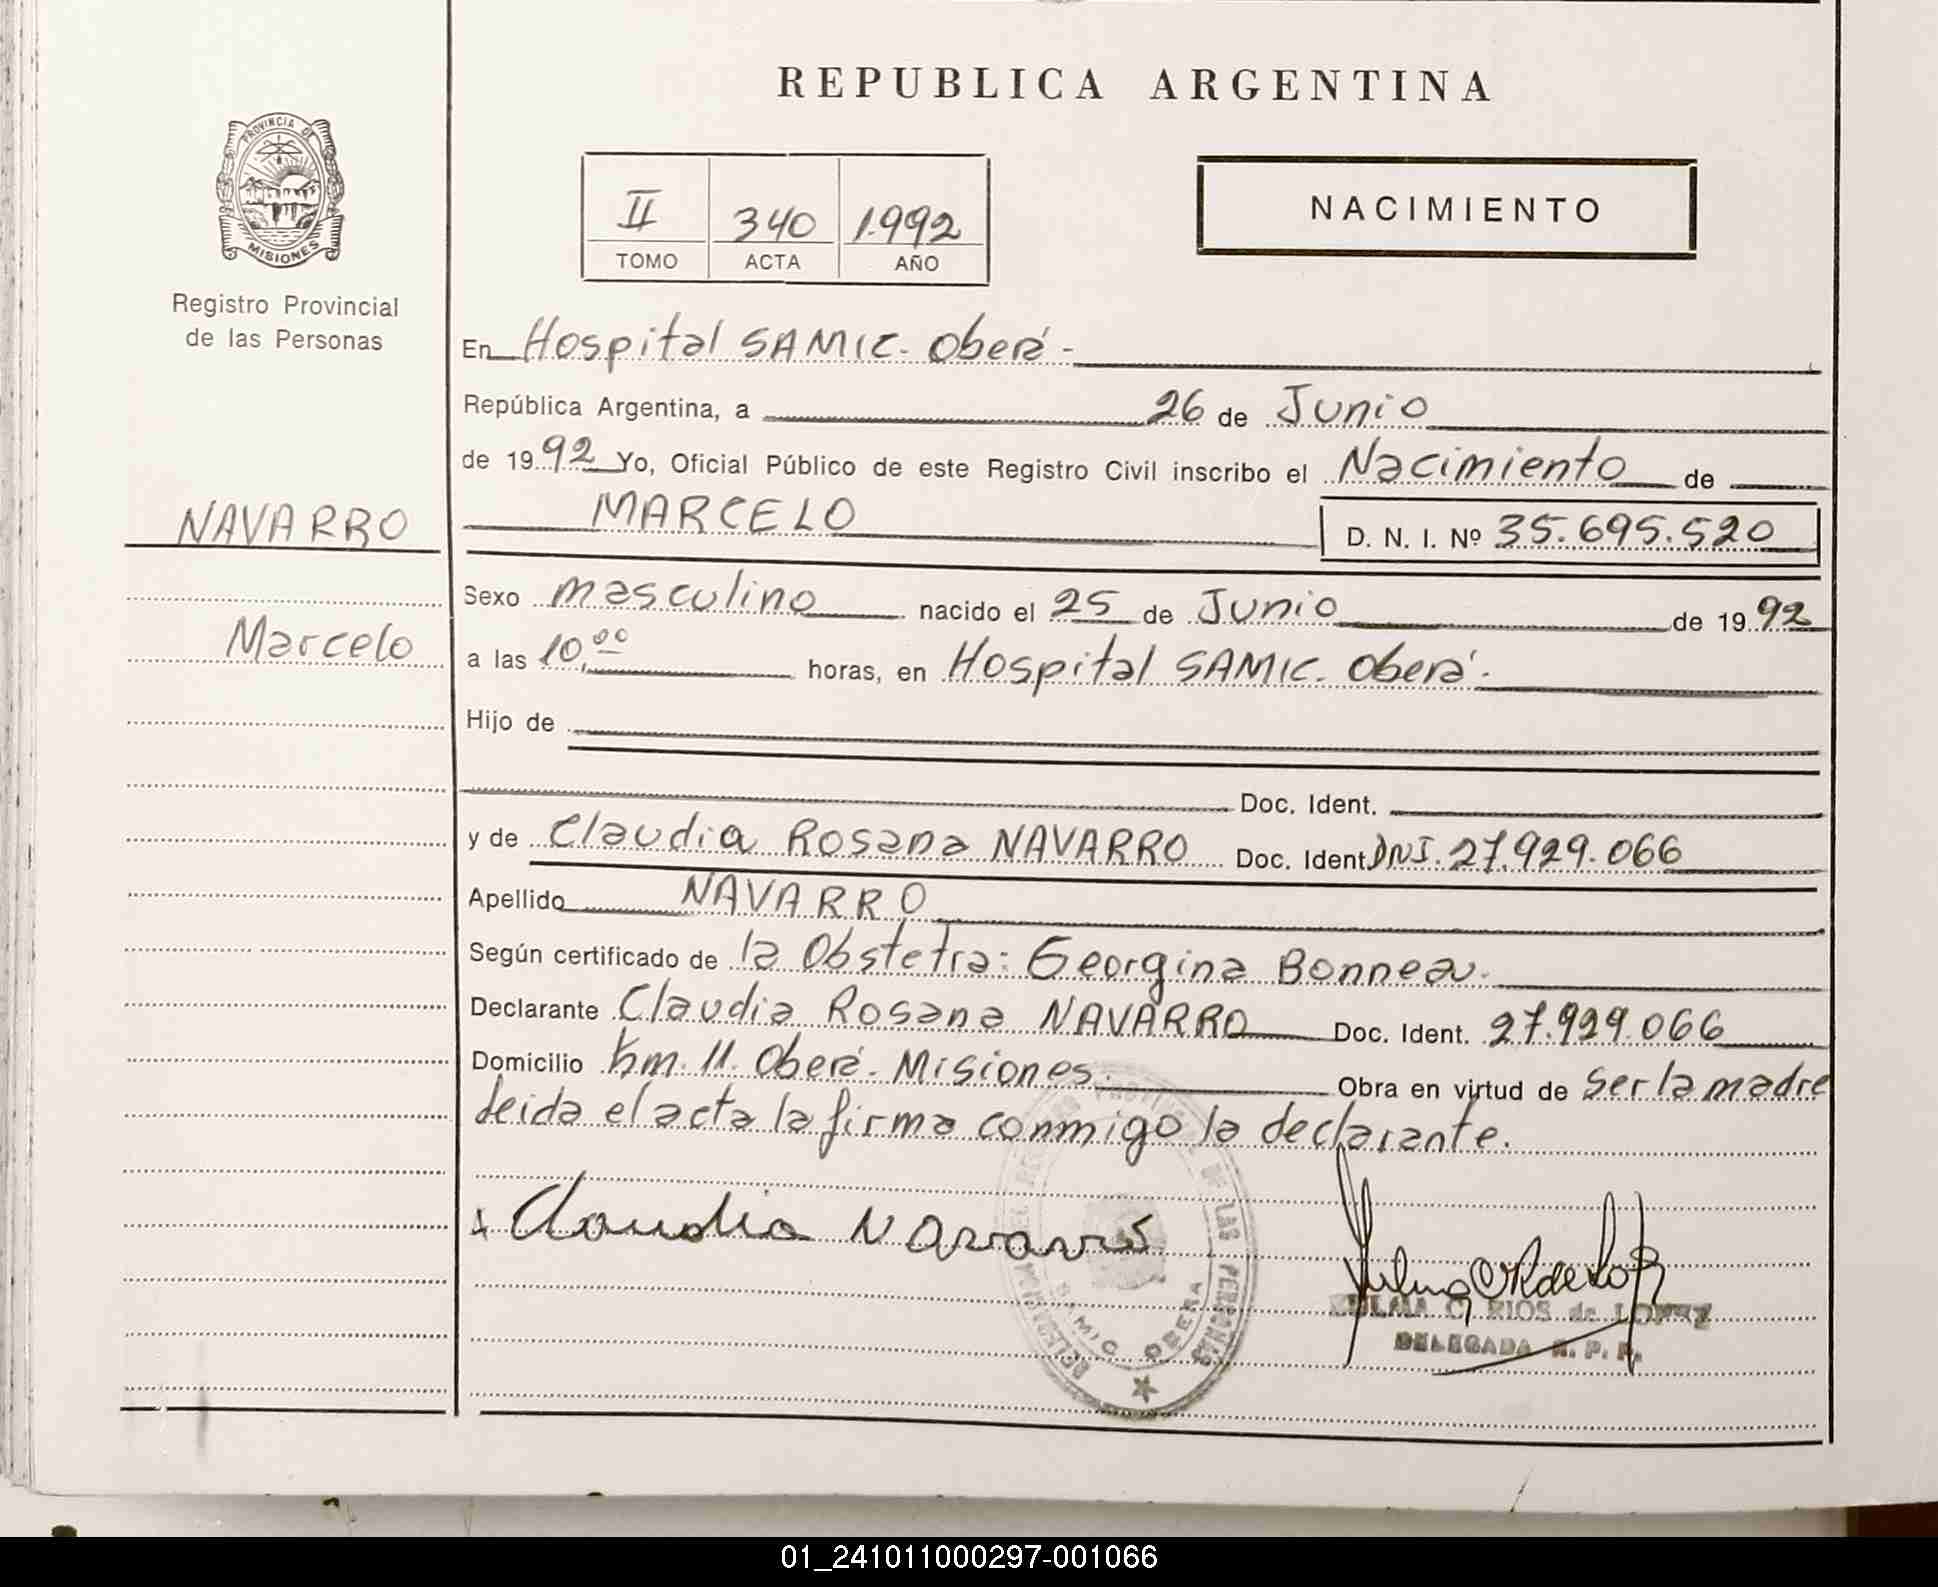 REPUBLICA ARGENTINA
PROVINCIA DE
MISIONES
Registro Provincial
de las Personas
II 340 1.992
TOMO ACTA AÑO
NACIMIENTO
En Hospital SAMIC. Oberá.-
República Argentina, a 26 de Junio
de 1992 Yo, Oficial Público de este Registro Civil inscribo el Nacimiento de
NAVARRO
MARCELO D. N. I. Nº 35.695.520
Sexo masculino nacido el 25 de Junio de 1992
Marcelo
a las 10,00 horas, en Hospital SAMIC. Oberá.
Hijo de
Doc. Ident.
y de Claudia Rosana NAVARRO Doc. Ident. DNI. 27.929.066
Apellido NAVARRO
Según certificado de la Obstetra: Georgina Bonneau.
Declarante Claudia Rosana NAVARRO Doc. Ident. 27.929.066
Domicilio Km. 11. Oberá. Misiones. Obra en virtud de ser la madre
leida el acta la firma conmigo la declarante.
Claudia Navarro
DELEGACION DEL REGISTRO PROVINCIAL DE LAS PERSONAS
SAMIC OBERA
ZULMA C. RIOS de LOPEZ
DELEGADA R. P. P.
01_241011000297-001066